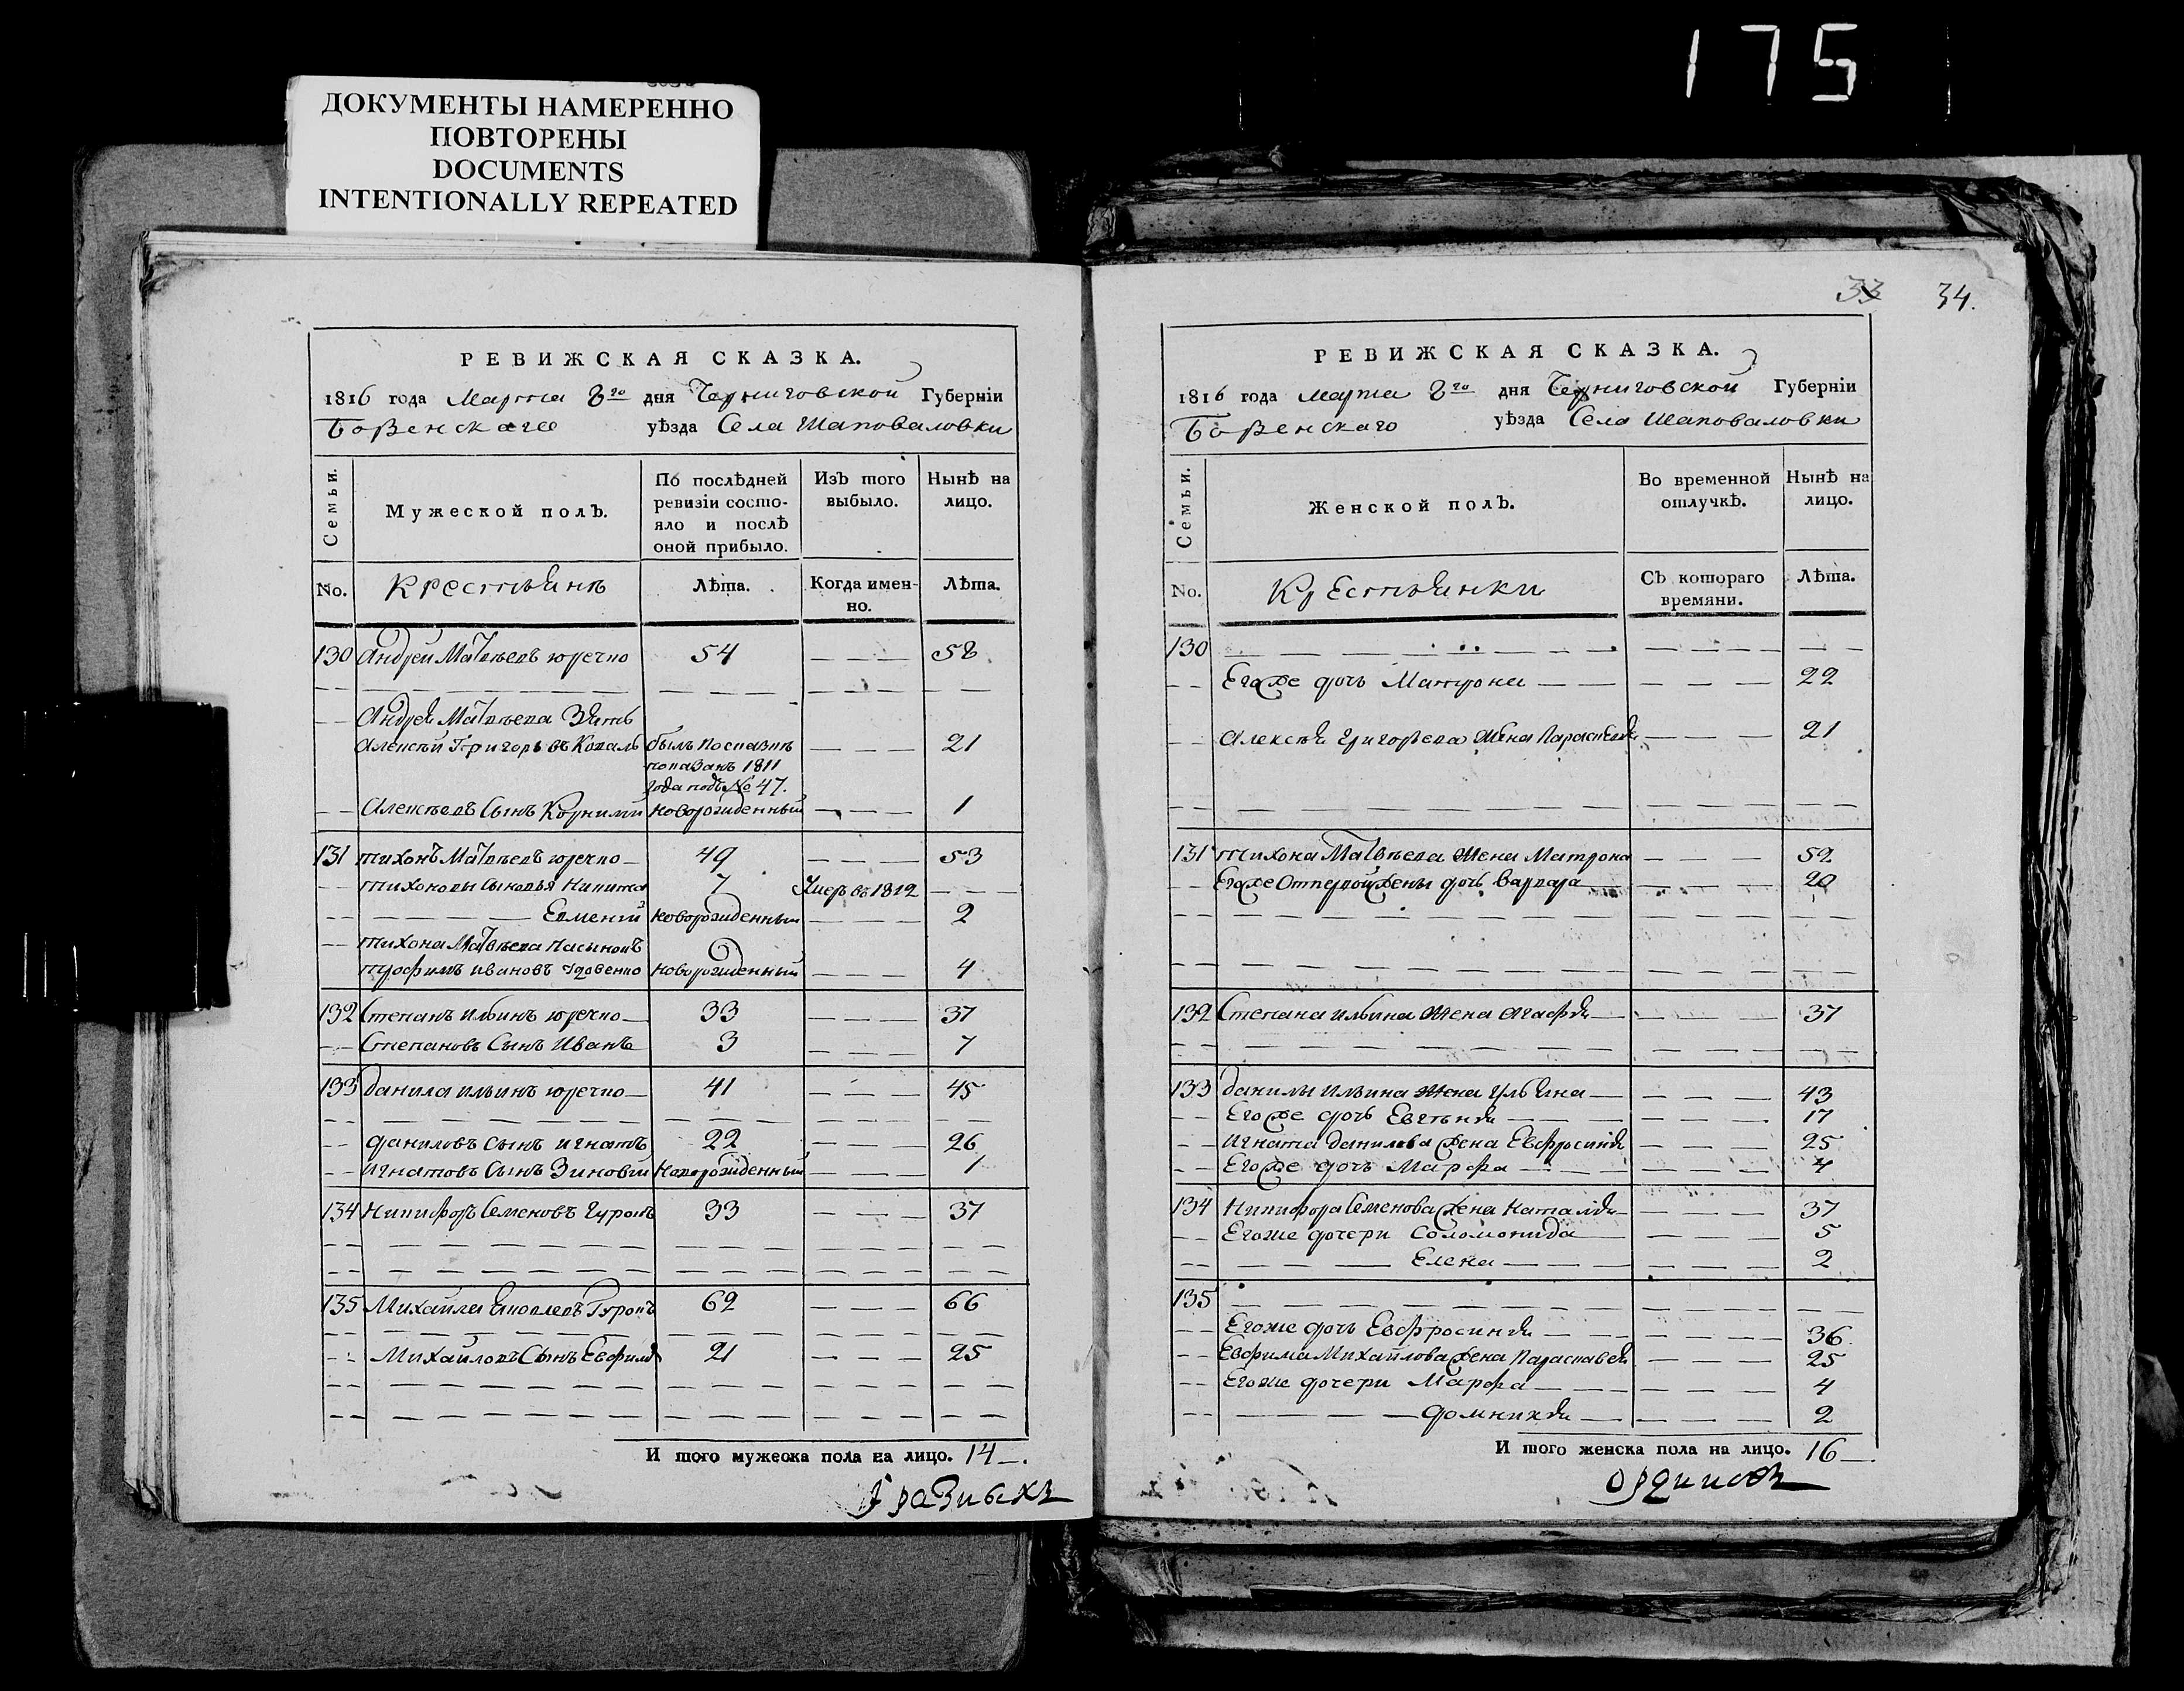 175
ДОКУМЕНТЫ НАМЕРЕННО
ПОВТОРЕНЫ
DOCUMENTS
INTENTIONALLY REPEATED
РЕВИЖСКАЯ СКАЗКА.
1816 года Марта 8го дня Черниговской Губерніи
Борзенскаго уѣзда Села Шаповаловки
Семьи. Мужеской полъ. По послѣдней ревизіи состояло и послѣ оной прибыло. Изъ того выбыло. Нынѣ на лицо.
No. Крестьянъ Лѣта. Когда именно. Лѣта.
130 Андрей Матвѣевъ юречко 54 — — — 58
Андрея Матвѣева Зять
Алексѣй Григорьевъ Коваль былъ по сказкѣ — — — 21
показанъ 1811
года подъ № 47.
Алексѣевъ Сынъ Корнилий новорожденный — — — 1
131 тихонъ Матвѣевъ юречко — 49 — — — 53
тихоновы Сыновья Никита 7 Умеръ въ 1812 — — —
— — — — Евмений новорожденный — — — 2
тихона Матвѣева Пасынокъ
трофимъ ивановъ Удовенко новорожденный — — — 4
132 Степанъ ильинъ юречко — 33 — — — 37
Степановъ Сынъ Иванъ 3 — — — 7
133 данила ильинъ юречко — 41 — — — 45
даниловъ Сынъ игнатъ 22 — — — 26
игнатовъ Сынъ Зиновий Новорожденный — — — 1
134 Никифоръ Семеновъ 33 — — — 37
135 Михайла Яковлевъ 62 — — — 66
Михайловъ Сынъ Евфимъ 21 — — — 25
И того мужеска пола на лицо. 14 —.
33 34.
РЕВИЖСКАЯ СКАЗКА.
1816 года марта 8го дня Черниговской Губерніи
Борзенскаго уѣзда Села Шаповаловки
Семьи. Женской полъ. Во временной отлучкѣ. Нынѣ на лицо.
No. Крестьянки Съ котораго времяни. Лѣта.
130 — — — — — —
Егоже дочь Матрона — — — — — 22
Алексѣя григорьева жена Параскевия — — — 21
131 тихона Матвѣева жена Матрона — — — 52
Егоже От первой жены дочь варвара — — — 20
132 Степана ильина жена Агафия — — — — 37
133 данилы ильина жена Ульяна — — — — 43
Егоже дочь Евгения — — — — 17
игната данилова жена Евфросиния — — — 25
Егоже дочь Марфа — — — — 4
134 Никифора Семенова жена Наталия — — — — 37
Егоже дочери Соломонида — — — 5
— — — Елена — — — — 2
135 — — — — — —
Егоже дочь Евфросиния — — — — 36
Евфима Михайлова жена Параскевия — — — 25
Егоже дочери Марфа — — — — 4
— — — — домникия — — — — 2
И того женска пола на лицо. 16 —.